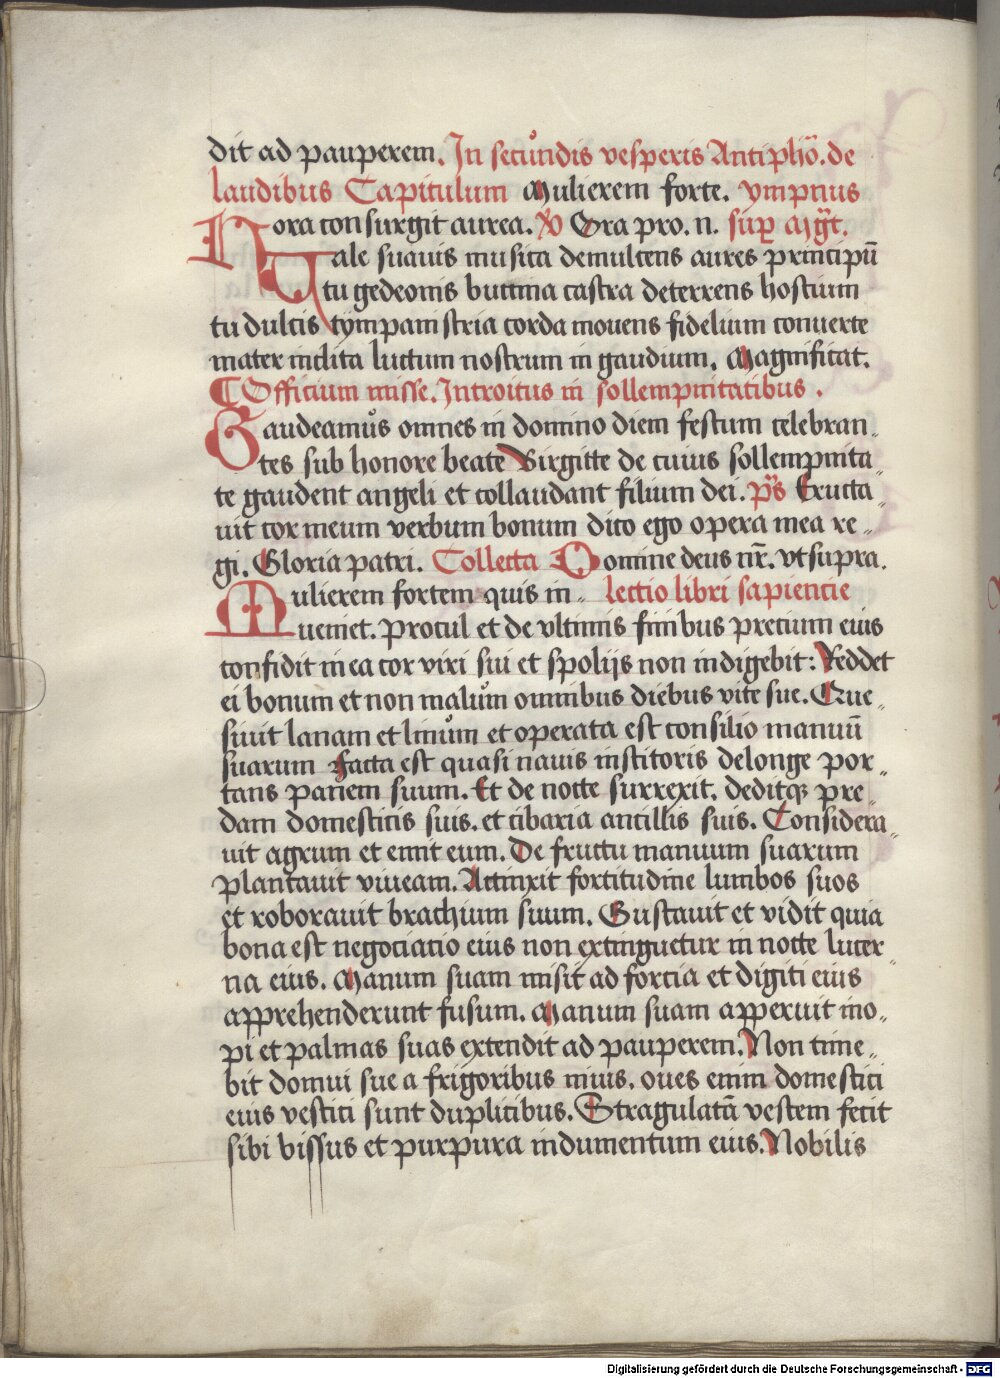 dit ad pauperem. In secundis vesperis Antipho. de
laudibus Capitulum Mulierem forte. ympnus
Hora consurgit aurea. V Ora pro. n. sup Mgt.
Vale suauis musica demulcens aures principū
tu gedeonis buccina castra deterrens hostium
tu dulcis tympanistria corda mouens fidelium conuerte
mater inclita luctum nostrum in gaudium. Magnificat.
Officium misse. Introitus in sollempnitatibus.
Gaudeamus omnes in domino diem festum celebran-
tes sub honore beate Birgitte de cuius sollempnita-
te gaudent angeli et collaudant filium dei. ps Eructa-
uit cor meum verbum bonum dico ego opera mea re-
gi. Gloria patri. Collecta Domine deus nr̄. vt supra.
Mulierem fortem quis in- lectio libri sapiencie
ueniet. Procul et de vltimis finibus precium eius
confidit in ea cor viri sui et spolijs non indigebit: Reddet
ei bonum et non malum omnibus diebus vite sue. Que-
siuit lanam et linum et operata est consilio manuū
suarum facta est quasi nauis institoris de longe por-
tans panem suum. Et de nocte surrexit. deditqꝫ pre-
dam domesticis suis. et cibaria ancillis suis. Considera-
uit agrum et emit eum. De fructu manuum suarum
plantauit vineam. Accinxit fortitudine lumbos suos
et roborauit brachium suum. Gustauit et vidit quia
bona est negociatio eius non extinguetur in nocte lucer-
na eius. Manum suam misit ad forcia et digiti eius
apprehenderunt fusum. Manum suam apperuit ino-
pi et palmas suas extendit ad pauperem. Non time-
bit domui sue a frigoribus niuis. oues enim domestici
eius vestiti sunt duplicibus. Stragulatā vestem fecit
sibi bissus et purpura indumentum eius. Nobilis
Digitalisierung gefördert durch die Deutsche Forschungsgemeinschaft - DFG